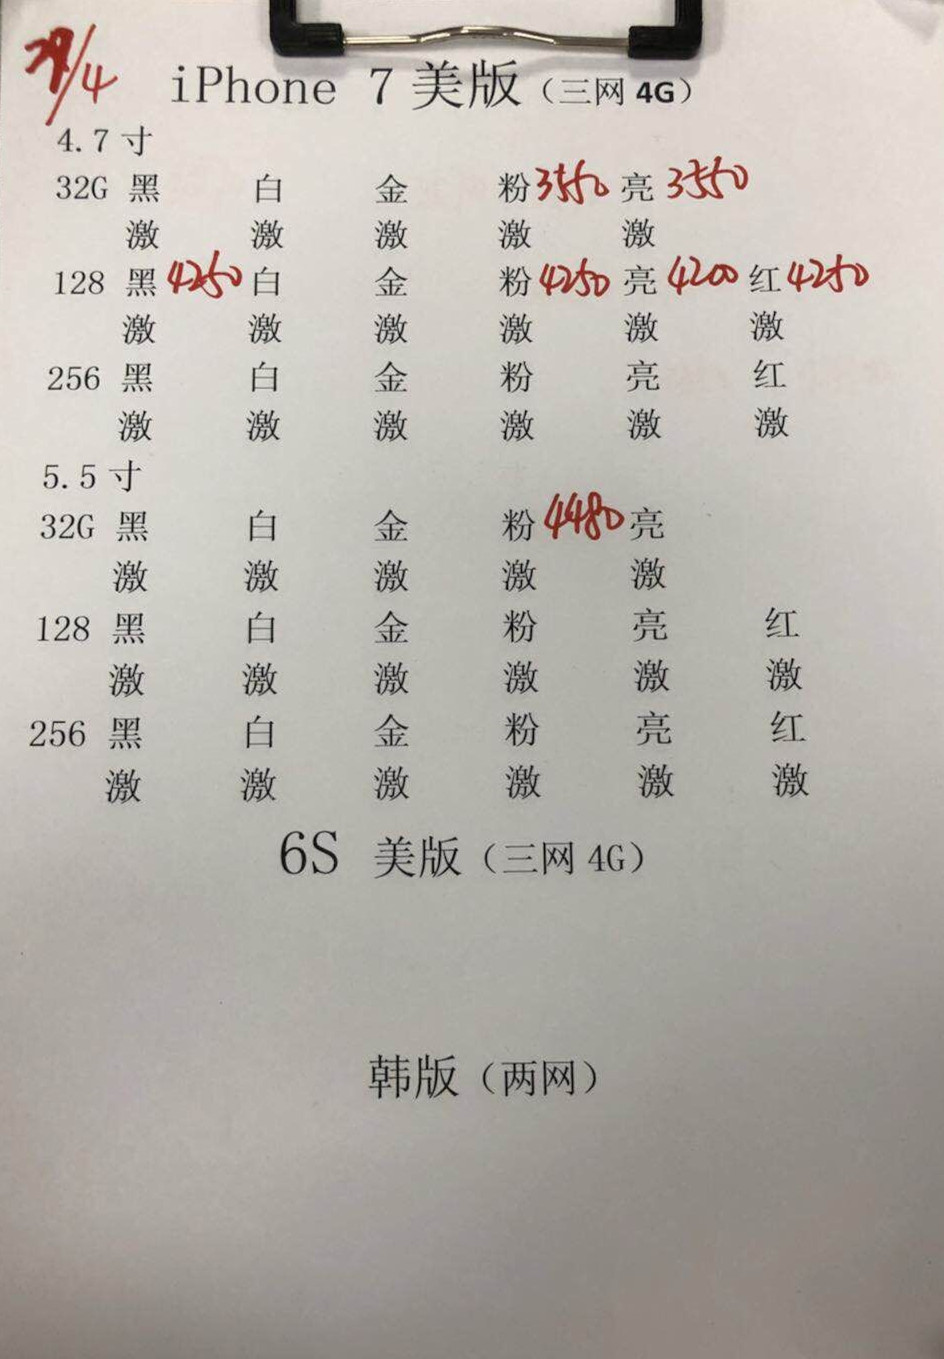 29/4
iPhone 7 美版（三网 4G）
4.7 寸
32G 黑 白 金 粉 3550 亮 3550
激 激 激 激 激
128 黑 4250 白 金 粉 4250 亮 4200 红 4250
激 激 激 激 激 激
256 黑 白 金 粉 亮 红
激 激 激 激 激 激
5.5 寸
32G 黑 白 金 粉 4480 亮
激 激 激 激 激
128 黑 白 金 粉 亮 红
激 激 激 激 激 激
256 黑 白 金 粉 亮 红
激 激 激 激 激 激
6S 美版（三网 4G）
韩版（两网）